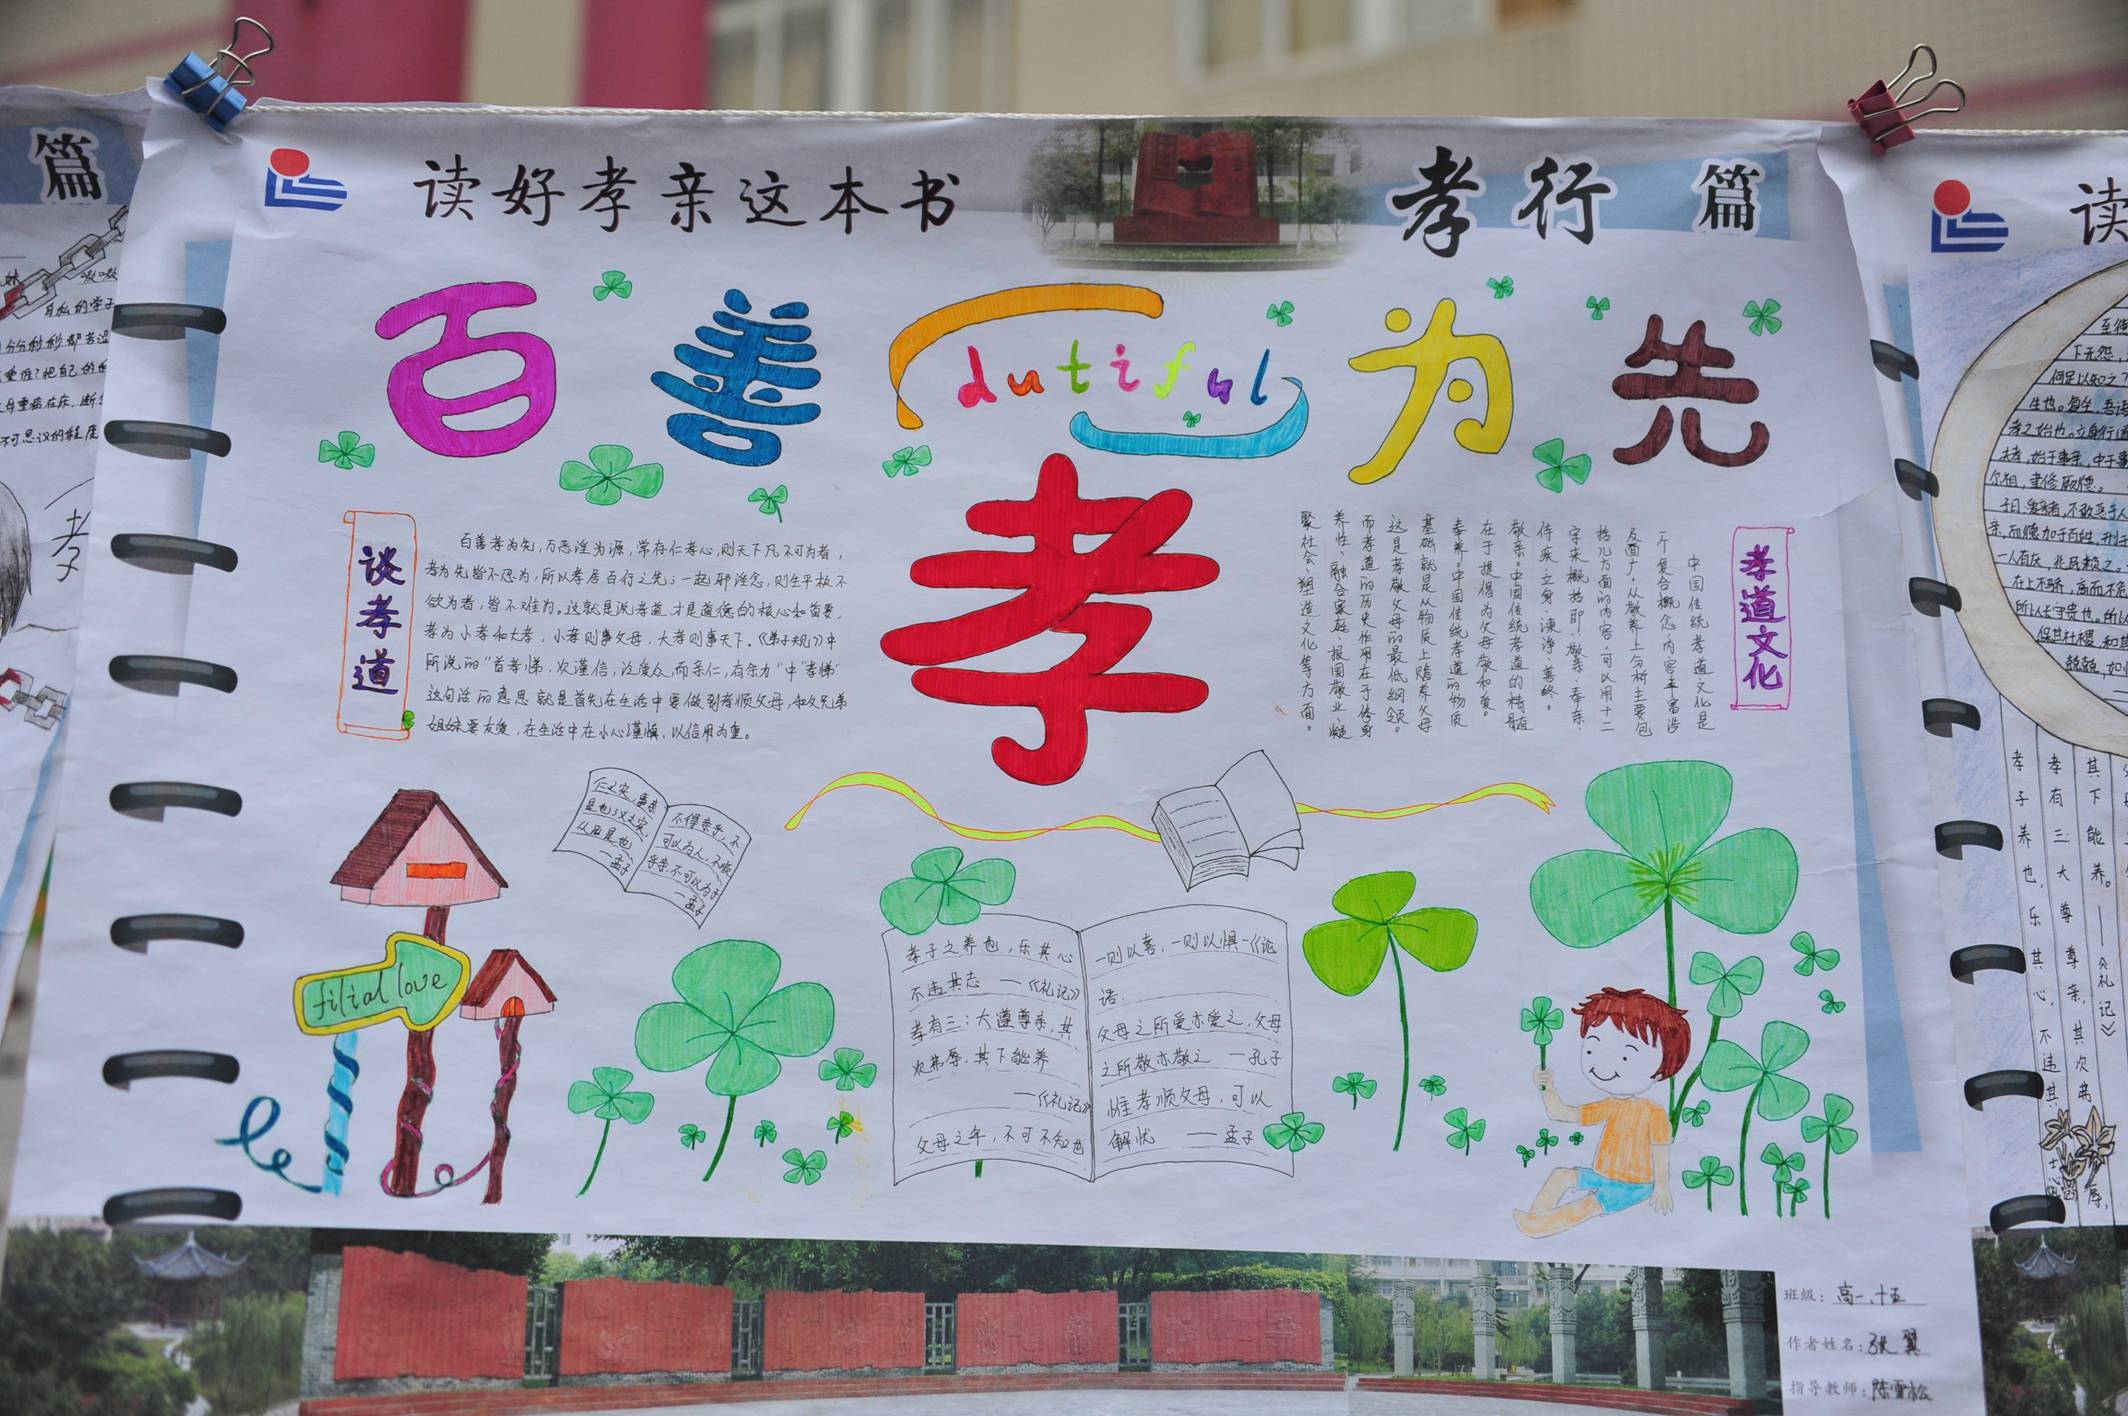 读好孝亲这本书
孝行篇
百善 dutiful 为先
孝
谈孝道
百善孝为先,万恶淫为源,常存仁孝心,则天下凡不可为者,
孝为先皆不忍为,所以孝居百行之先;一起邪淫念,则生平极不
欲为者,皆不难为。这就是说孝道才是道德的核心和首要,
孝为小孝和大孝,小孝则事父母,大孝则事天下。《弟子规》中
所说的“首孝悌,次谨信,泛爱众,而亲仁,有余力”中“孝悌”
这句话的意思就是首先在生活中要做到孝顺父母,和兄弟
姐妹要友爱,在生活中在小心谨慎,以信用为重。
孝道文化
中国传统孝道文化是
一个复合概念,内容丰富涉
及面广,从敬养上分析主要包
括几方面的内容,可以用十二
字来概括即:敬亲、奉亲、
侍疾、立身、谏诤、善终。
敬亲。中国传统孝道的精髓
在于提倡为父母敬和爱。
奉养。中国传统孝道的物质
基础就是从物质上赡养父母
这是孝敬父母的最低纲领。
而孝道的历史作用在于修身
养性、融合家庭、报国敬业、凝
聚社会、塑造文化等方面。
仁之实,事亲
是也;义之实,
从兄是也
—孟子
不得亲乎,不
可以为人,不顺
乎亲,不可以为子
—孟子
filial love
孝子之养也,乐其心
不违其志 —《礼记》
孝有三:大遵尊亲,其
次弗辱,其下能养
—《礼记》
父母之年,不可不知也
一则以喜,一则以惧—《论
语.
父母之所爱亦爱之,父母
之所敬亦敬之 —孔子
惟孝顺父母,可以
解忧 —孟子
班级:高一.十五
作者姓名:张翼
指导教师:陈雪松
篇
孝
读
孝子养也,乐其心,不违其
孝有三:大尊尊亲,其次弗辱,
其下能养。——《礼记》